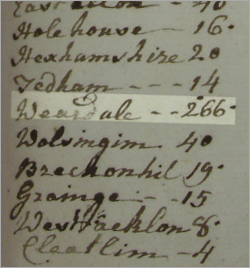 Hole house - - 16·
Hexhamshire 20
Tedham - - - 14
Weardale - - 266·
Wolsingim 40
Brechonhil 19·
Grainge - - 15
Cleatlim - 4